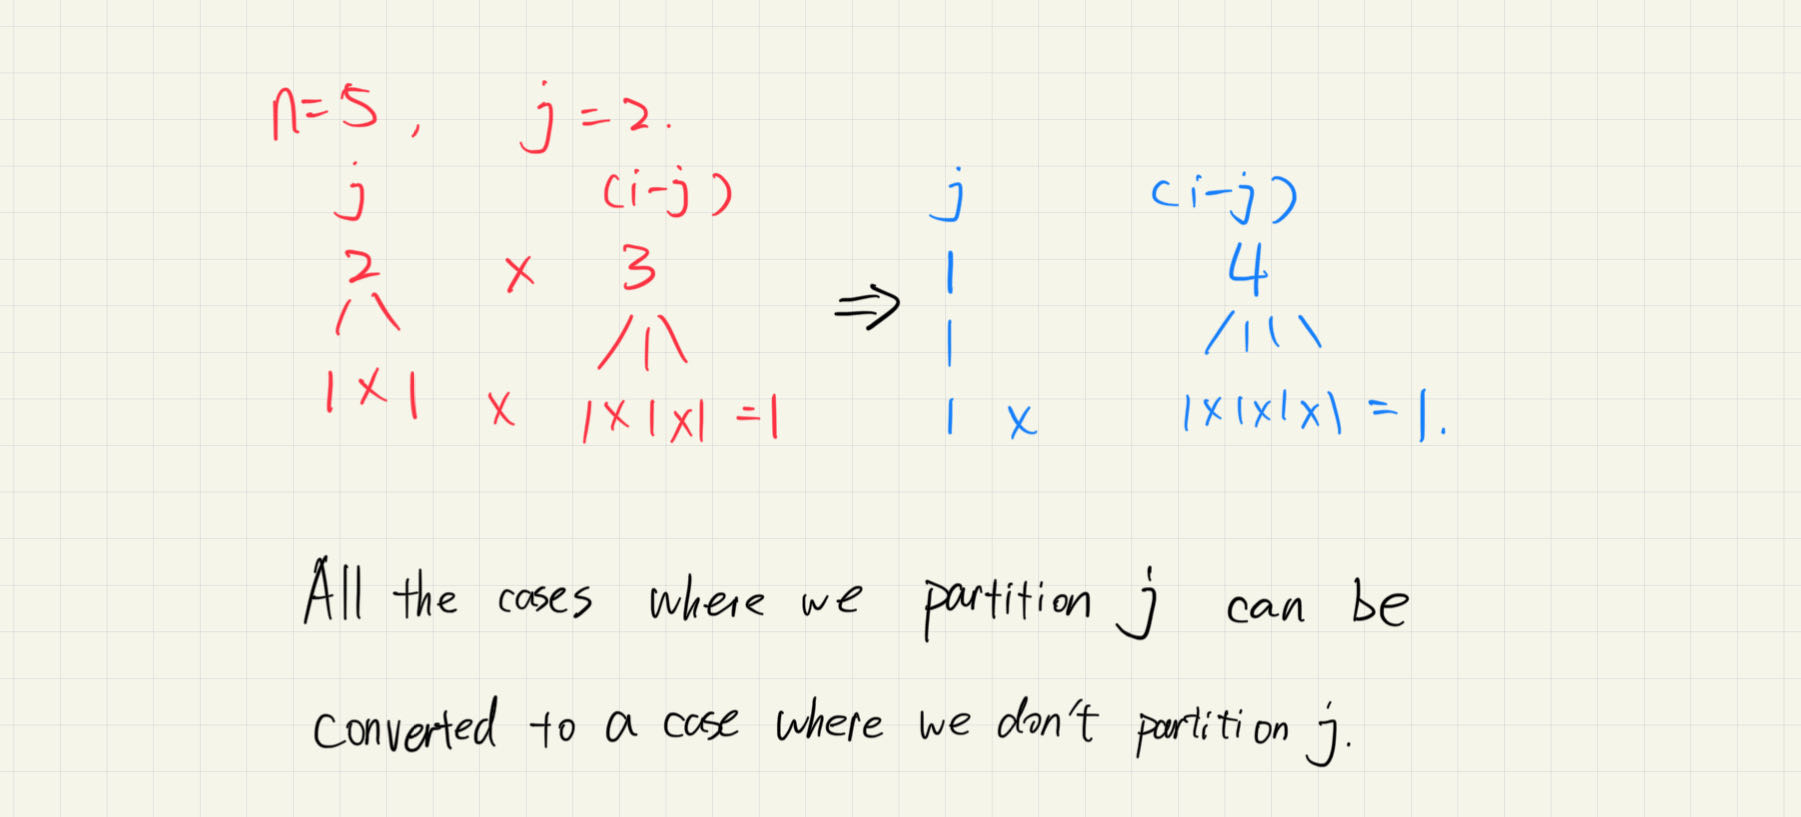 n=5, j=2.
j (i-j) j (i-j)
2 x 3 ⇒ 1 4
1x1 x 1x1x1 =1 1 x 1x1x1x1 = 1.
All the cases where we partition j can be
converted to a case where we don't partition j.